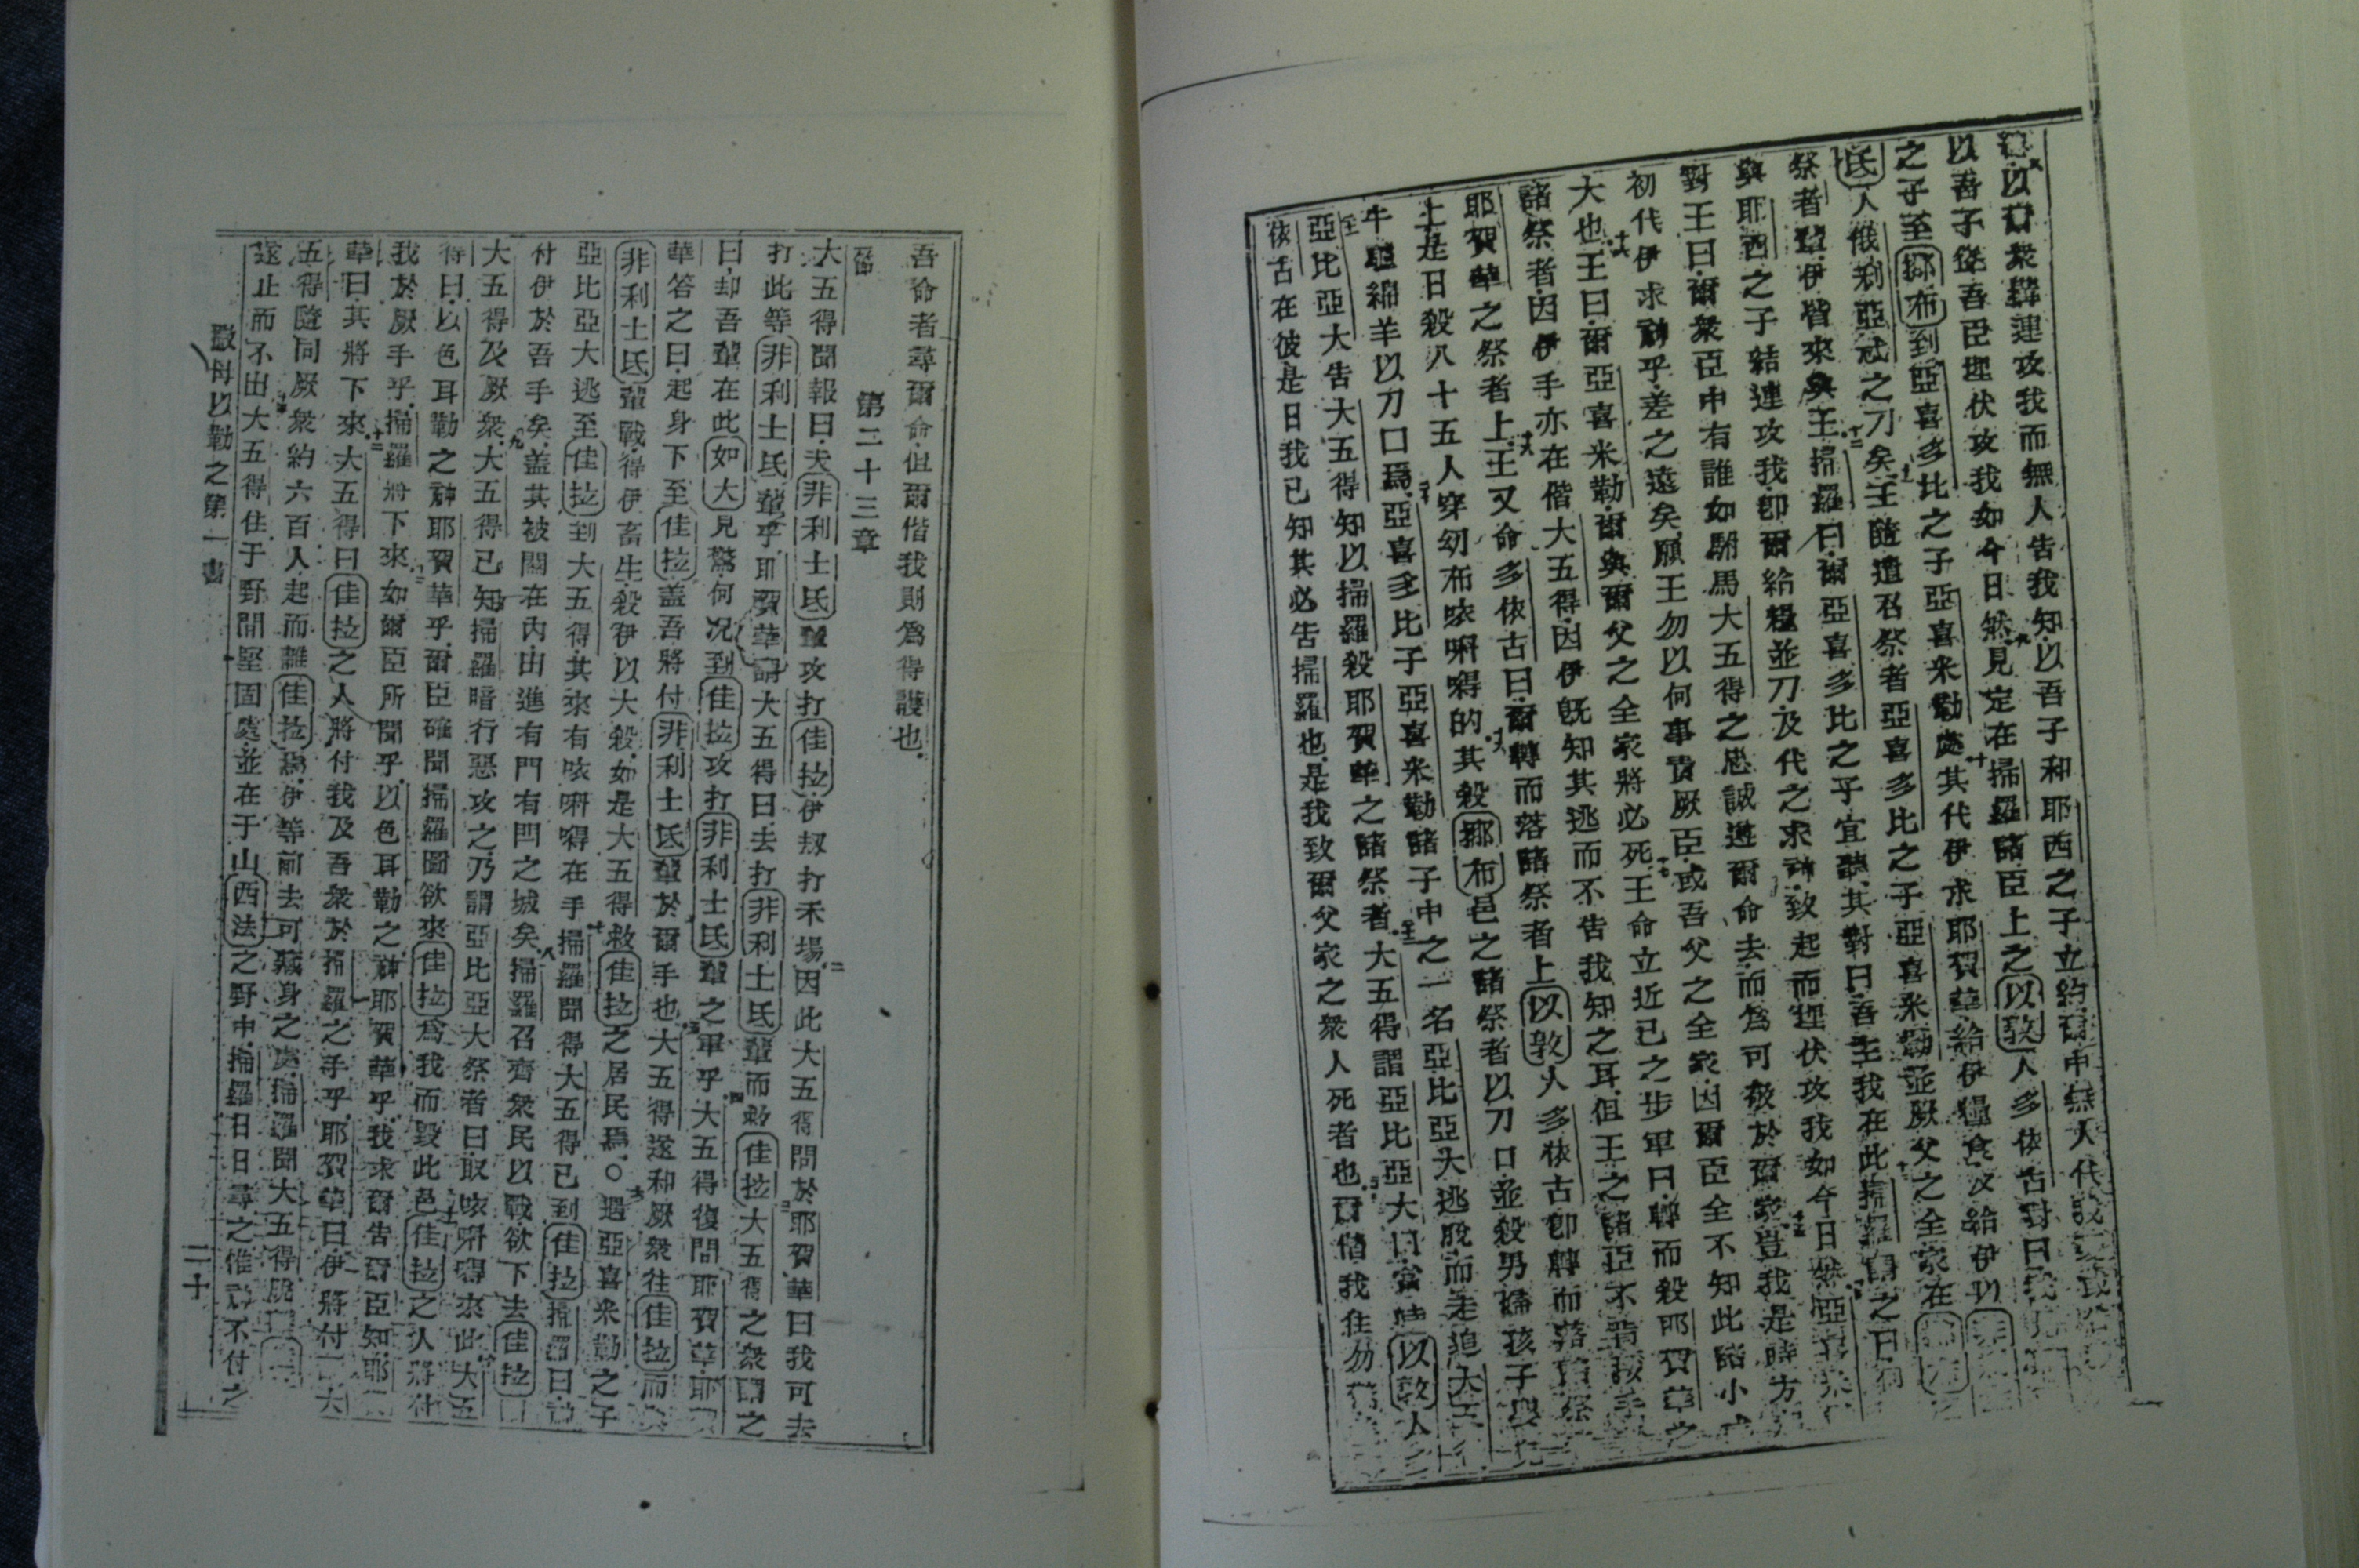 以爾衆結連攻我而無人告我知以吾子和耶西之子立約爾中無人代我
以吾子從吾臣埋伏攻我如今日然九見定在掃羅諸臣上之以敦人多依古對曰我見
之子至挪布到亞喜多比之子亞喜米勒處十其代伊求耶賀華給伊糧食及給伊以非利士
氏人俄利亞忒之刀矣十一王隨遣召祭者亞喜多比之子亞喜米勒並厥父之全家在挪布
祭者輩伊皆來與王十二掃羅曰爾亞喜多比之子宜聽其對曰吾主我在此掃羅謂之曰何
與耶西之子結連攻我卽爾給糧並刀及代之求神致起而埋伏攻我如今日然亞喜米
對王曰爾衆臣中有誰如駙馬大五得之忠誠遵爾命去而爲可敬於爾家豈我是時方
初代伊求神乎差之遠矣願王勿以何事責厥臣或吾父之全家因爾臣全不知此諸小
大也十六王曰爾亞喜米勒爾與爾父之全家將必死十七王命立近己之步軍曰轉而殺耶賀華之
諸祭者因伊手亦在偕大五得因伊旣知其逃而不告我知之耳但王之諸臣不肯
耶賀華之祭者上十八王又命多依古曰爾轉而落諸祭者上以敦人多依古卽轉而落諸祭
上是日殺八十五人穿幼布㕽𠲖㘔的其殺挪布邑之諸祭者以刀口並殺男婦孩子
牛驢綿羊以刀口焉二十亞喜多比子亞喜米勒諸子中之一名亞比亞大逃脫而走追大五
亞比亞大告大五得知以掃羅殺耶賀華之諸祭者大五得謂亞比亞大曰當時以敦人
依古在彼是日我已知其必告掃羅也是我致爾父家之衆人死者也爾偕我住勿
吾命者尋爾命但爾偕我則爲得護也
第二十三章
大五得聞報曰夫非利士氏輩攻打佳拉伊刼打禾場二因此大五得問於耶賀華曰我可去
打此等非利士氏輩乎耶賀華謂大五得曰去打非利士氏輩而救佳拉三大五得之衆謂之
曰却吾輩在此如大見驚何况到佳拉攻打非利士氏輩之軍乎四大五得復問耶賀華耶賀
華答之曰起身下至佳拉蓋吾將付非利士氏輩於爾手也五大五得遂和厥衆往佳拉而與
非利士氏輩戰得伊畜生殺伊以大殺如是大五得救佳拉之居民焉○六遇亞喜米勒之子
亞比亞大逃至佳拉到大五得其來有㕽𠲖㘔在手七掃羅聞得大五得已到佳拉掃羅曰神
付伊於吾手矣蓋其被關在內由進有門有閂之城矣八掃羅召齊衆民以戰欲下去佳拉
大五得及厥衆九大五得已知掃羅暗行惡攻之乃謂亞比亞大祭者曰取㕽𠲖㘔來此十大五
得曰以色耳勒之神耶賀華乎爾臣確聞掃羅圖欲來佳拉爲我而毀此邑十一佳拉之人將付
我於厥手乎掃羅將下來如爾臣所聞乎以色耳勒之神耶賀華乎我求爾告爾臣知耶賀
華曰其將下來十二大五得曰佳拉之人將付我及吾衆於掃羅之手乎耶賀華曰伊將付
大五得隨同厥衆約六百人起而離佳拉焉伊等前去可藏身之處掃羅聞大五得脫
遂止而不出十四大五得住于野間堅固處並在于山西法之野中掃羅日日尋之惟神不付之
撒母以勒之第一書
二十